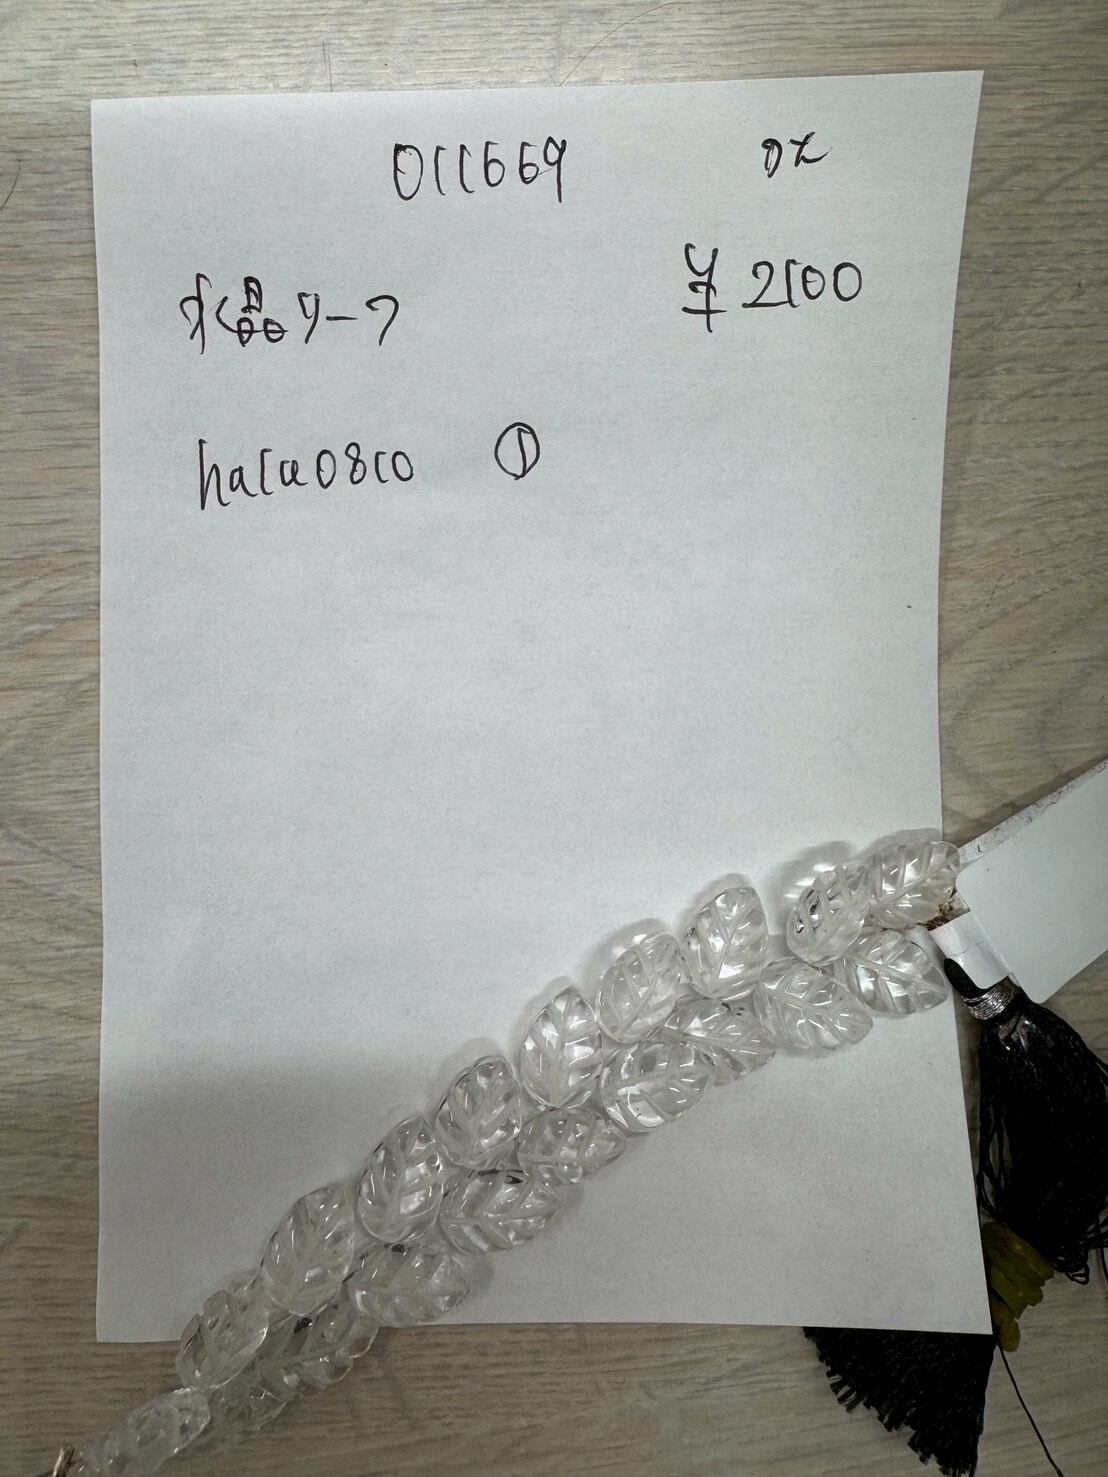 011669
水晶リーフ ¥2100
hala0810 ①